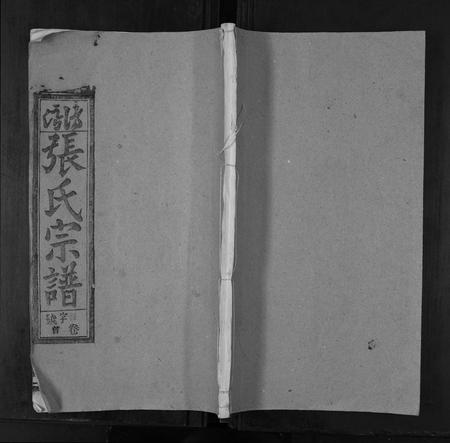 張氏宗譜
字號
卷首